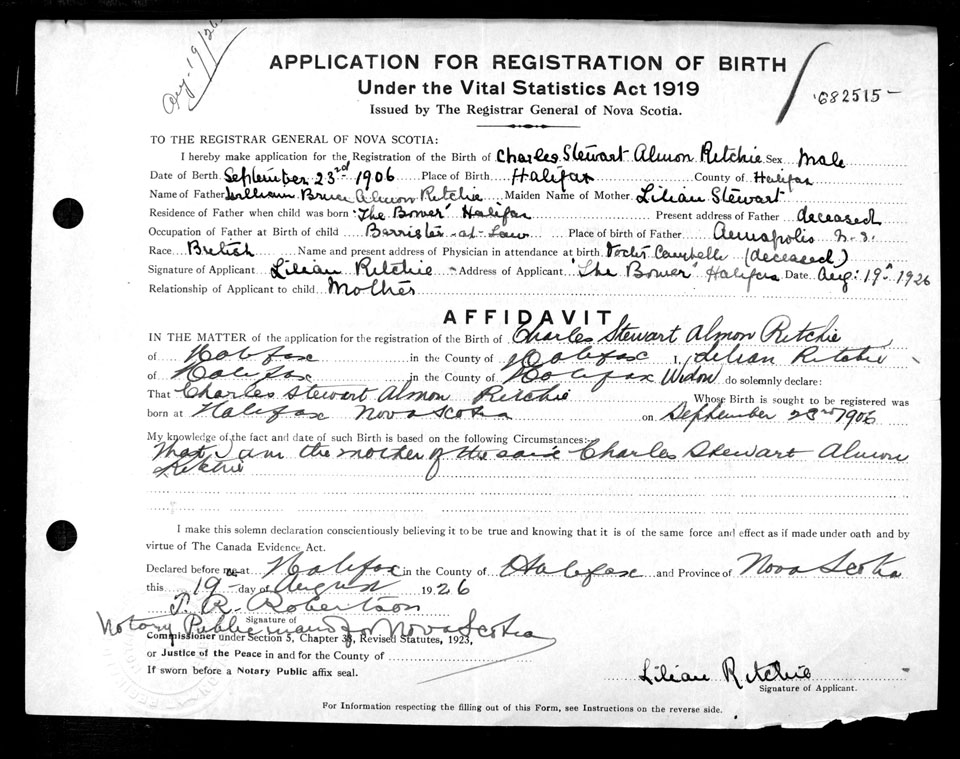 Aug-19/26
APPLICATION FOR REGISTRATION OF BIRTH
Under the Vital Statistics Act 1919
Issued by The Registrar General of Nova Scotia.
682515-
TO THE REGISTRAR GENERAL OF NOVA SCOTIA:
I hereby make application for the Registration of the Birth of Charles Stewart Almon Ritchie Sex Male
Date of Birth September 23rd 1906 Place of Birth Halifax County of Halifax
Name of Father William Bruce Almon Ritchie Maiden Name of Mother Lilian Stewart
Residence of Father when child was born "The Bower" Halifax Present address of Father deceased
Occupation of Father at Birth of child Barrister-at-Law Place of birth of Father Annapolis N.S.
Race British Name and present address of Physician in attendance at birth Doctor Campbell (deceased)
Signature of Applicant Lilian Ritchie - Address of Applicant "The Bower" Halifax Date Aug: 19th 1926
Relationship of Applicant to child Mother
AFFIDAVIT
IN THE MATTER of the application for the registration of the Birth of Charles Stewart Almon Ritchie
of Halifax in the County of Halifax I, Lilian Ritchie
of Halifax in the County of Halifax Widow do solemnly declare:
That Charles Stewart Almon Ritchie Whose Birth is sought to be registered was
born at Halifax Nova Scotia on September 23rd 1906
My knowledge of the fact and date of such Birth is based on the following Circumstances:
That I am the mother of the said Charles Stewart Almon
Ritchie
I make this solemn declaration conscientiously believing it to be true and knowing that it is of the same force and effect as if made under oath and by
virtue of The Canada Evidence Act.
Declared before me at Halifax in the County of Halifax and Province of Nova Scotia
this 19 day of August 1926
T. R. Robertson
Signature of
Notary Public in and for Nova Scotia
Commissioner under Section 5, Chapter 38, Revised Statutes, 1923,
or Justice of the Peace in and for the County of
If sworn before a Notary Public affix seal.
Lilian Ritchie
Signature of Applicant.
For Information respecting the filling out of this Form, see Instructions on the reverse side.